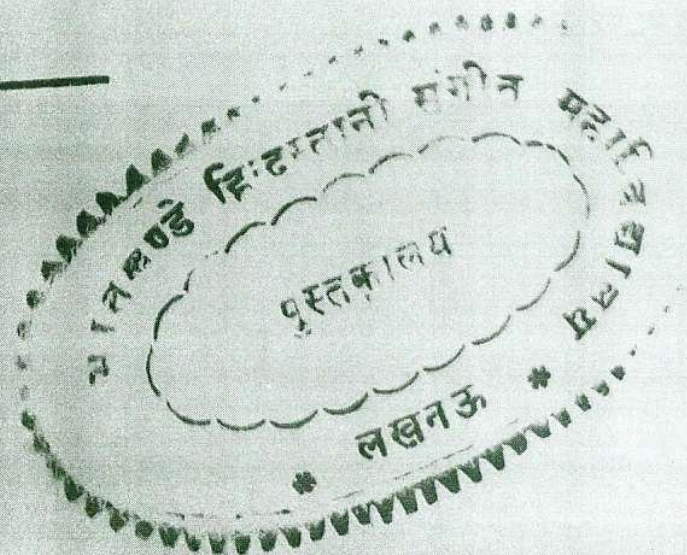 भातखण्डे हिन्दुस्तानी संगीत महाविद्यालय
पुस्तकालय
लखनऊ